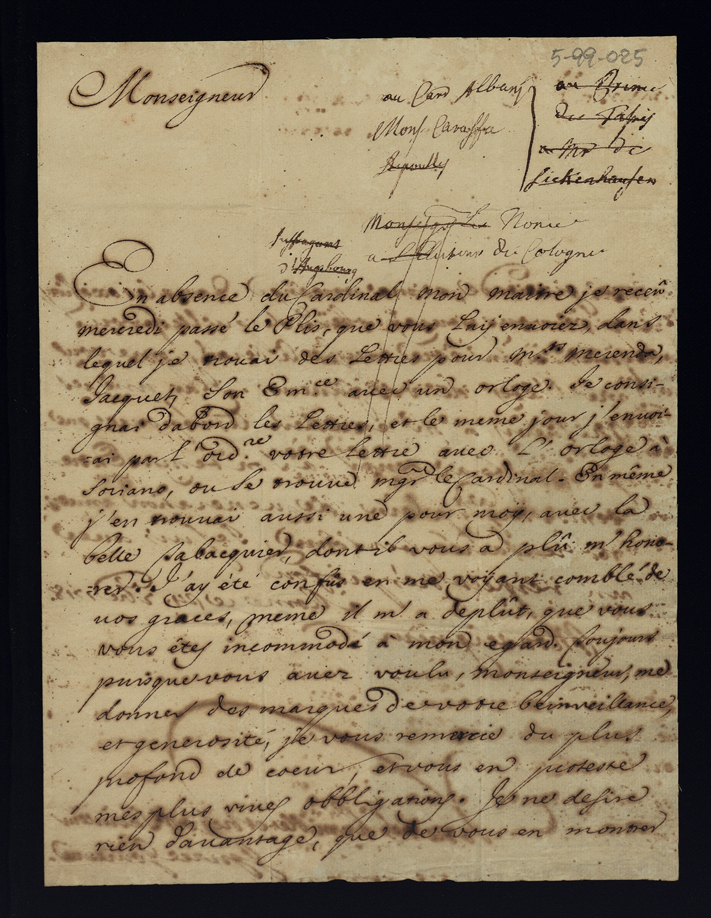 5-99-025
Monseigneur
au Card Albanj
Monsr Caraffa
au Prince
a Mr de
Monseigr Nonce
de Cologne
Suffragant
d'Augsbourg
En absence du Cardinal mon maitre je receû
mercredi passé le Plis, que vous Luy envoiez, dans
lequel je trouai des Lettres pour Mrs merenda,
Jacquet, Son Emce avec un orloge. Je consi-
gnai dabord les Lettres, et le meme jour j'envoi-
-ai par l'ordre votre lettre avec L'orloge à
Soriano, ou se trouve mgr le Cardinal. En même
j'en trouvai aussi une pour moy, avec la
belle Tabacquier, dont il vous a plû m'hono-
rer. J'ay été confus en me voyant comblé de
vos graces, meme il m'a deplût, que vous
vous étes incommodé à mon egard. Toujours
puisque vous avez voulu, monseigneur, me
donner des marques de votre beinveillance,
et generosité, je vous remercie du plus
profond de coeur, et vous en proteste
mes plus vives obbligations. Je ne desire
rien d'avantage, que de vous en montrer